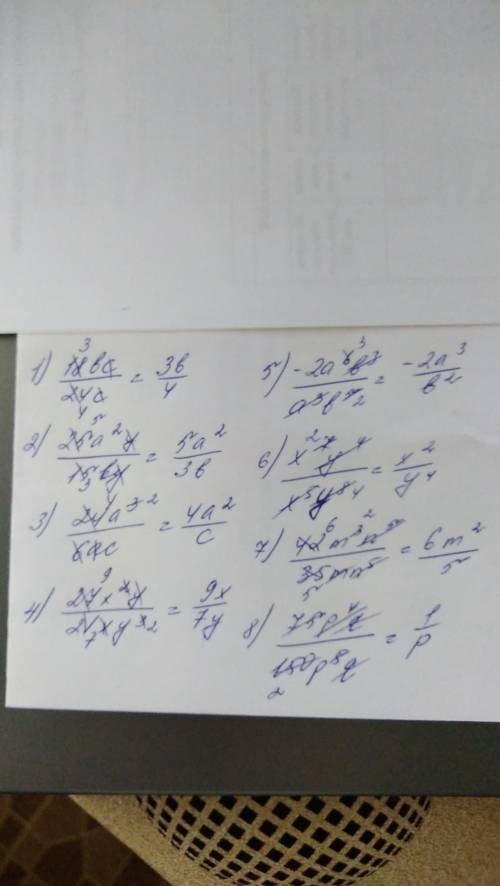 1) 18bc/24c = 3b/4
2) 25a²y/15by = 5a²/3b
3) 24a³/6ac = 4a²/c
4) 27x²y/21xy² = 9x/7y
5) -2a⁶b/a³b³ = -2a³/b²
6) x⁷y⁴/x⁵y⁸ = x²/y⁴
7) 42m³n⁵/35mn⁵ = 6m²/5
8) = 1/p